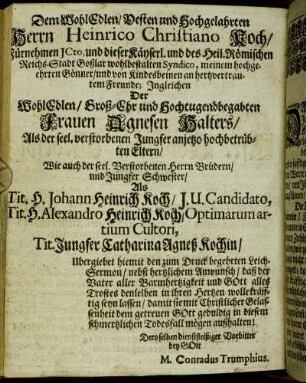 Dem WohlEdlen/ Vesten und Hochgelahrten
Herrn Heinrico Christiano Koch/
Fürnehmen JCto, und dieser Käyserl. und des Heil. Römischen
Reichs-Stadt Goßlar wohlbestalten Syndico, meinem hochge-
ehrten Gönner/ und von Kindesbeinen an hertzvertrau-
tem Freunde; Ingleichen
Der
WohlEdlen/ Groß-Ehr und Hochtugendbegabten
Frauen Agnesen Halters/
Als der seel. verstorbenen Jungfer anjetzo hochbetrüb-
ten Eltern/
Wie auch der seel. Verstorbenen Herrn Brüdern/
und Jungfer Schwester/
Als
Tit. H. Johann Heinrich Koch/ J. U. Candidato,
Tit. H. Alexandro Heinrich Koch/ Optimarum ar-
tium Cultori,
Tit. Jungfer Catharina Agneß Kochin/
Ubergiebet hiemit den zum Druck begehrten Leich-
Sermon/ nebst hertzlichem Anwunsch/ daß der
Vater aller Barmhertzigkeit und GOtt alles
Trostes denselben in ihren Hertzen wolle kräff-
tig seyn lassen/ damit sie mit Christlicher Gelas-
senheit dem getreuen GOtt geduldig in diesem
schmertzlichen Todesfall mögen aushalten!
Deroselben dienstfleißiger Vorbitter
bey GOtt
M. Conradus Trumphius.